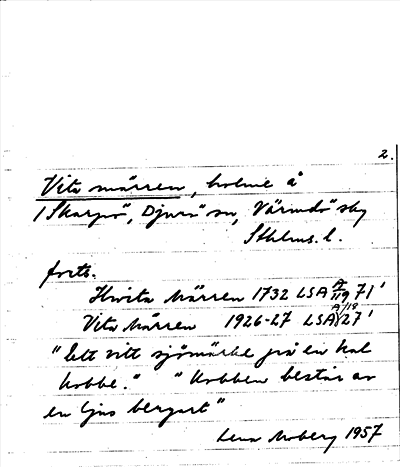 2.
Vita märren, holme å
/Skarpö, Djurö sn, Värmdö skg
Sthlms. l.
forts.
Hwita Märren 1732 LSA A/119 71'
Vita Märren 1926-27 LSA A/119 27'
"Ett vitt sjömärke på en kal
kobbe." "Kobben består av
en ljus bergart"
Lena Moberg 1957